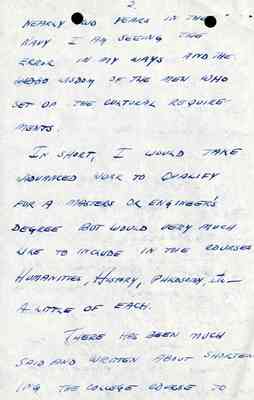 2.
NEARLY TWO YEARS IN THE
NAVY I AM SEEING THE
ERROR IN MY WAYS AND THE
GOOD WISDOM OF THE MEN WHO
SET UP THE CULTURAL REQUIRE-
MENTS.
IN SHORT, I WOULD TAKE
ADVANCED WORK TO QUALIFY
FOR A MASTERS OR ENGINEER'S
DEGREE BUT WOULD VERY MUCH
LIKE TO INCLUDE IN THE COURSES
HUMANITIES, HISTORY, PHILOSOPHY, ETC—
A LITTLE OF EACH.
THERE HAS BEEN MUCH
SAID AND WRITTEN ABOUT SHORTEN-
ING THE COLLEGE COURSE TO